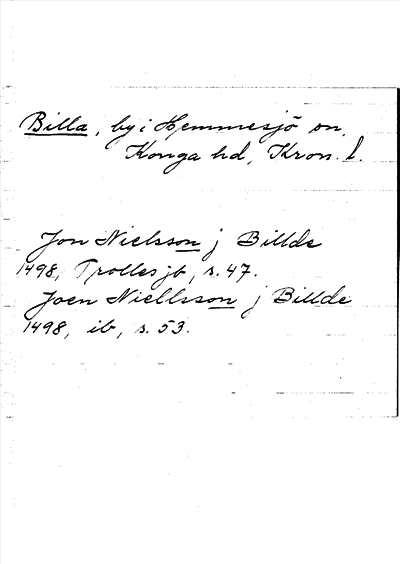 Billa, by i Hemmesjö sn,
Konga hd, Kron. l.
Jon Nielsson j Billde
1498, Trolles jb, s. 47.
Joen Niellsson j Billde
1498, ib, s. 53.